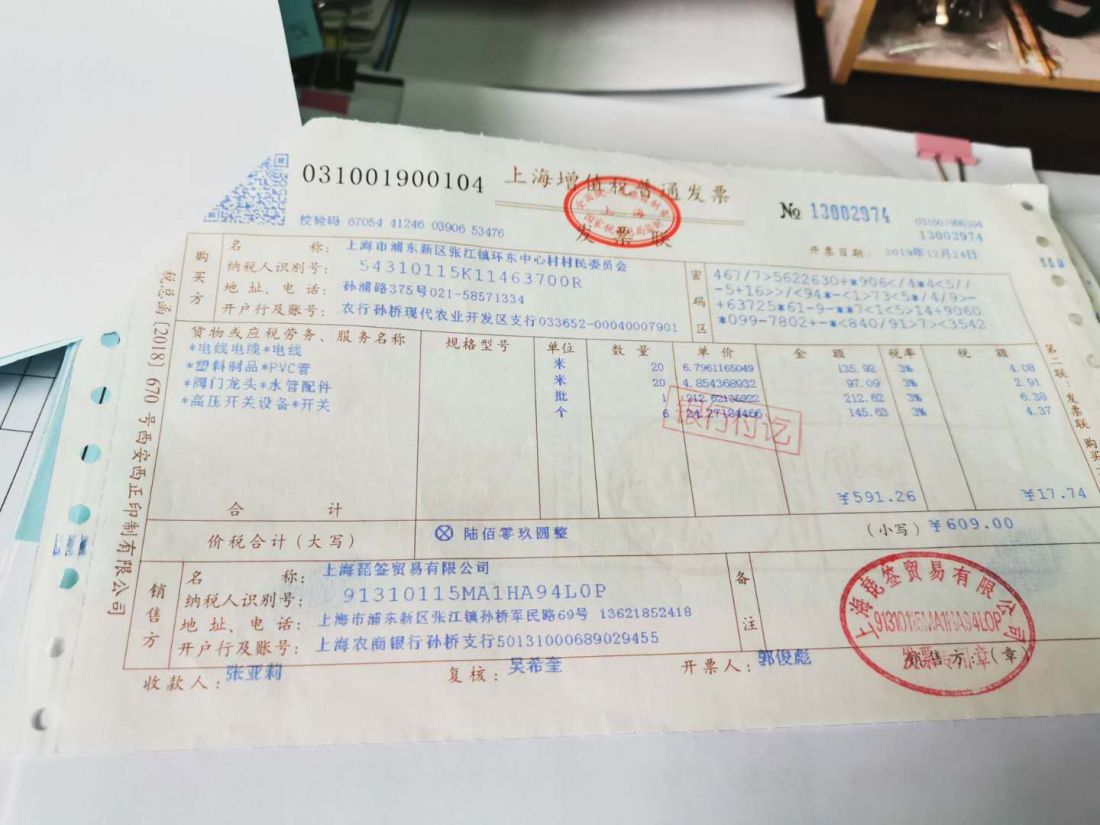 031001900104
上海增值税普通发票
发票联
№ 13002974
031001900104
13002974
校验码 67054 41246 03906 53476
开票日期： 2019年12月24日
购买方
名 称： 上海市浦东新区张江镇环东中心村村民委员会
纳税人识别号： 54310115K11463700R
地 址、电 话： 孙浦路375号021-58571334
开户行及账号： 农行孙桥现代农业开发区支行033652-00040007901
密码区
467/7>5622630+*906</4*4<5//
-5+16>>/<94*-<1>73<5*/4/9>-
+63725*61-9-**7<1<5>14+9060
*099-7802+-*<840/91>7><3542
货物或应税劳务、服务名称 规格型号 单位 数 量 单 价 金 额 税率 税 额
*电线电缆*电线 米 20 6.7961165049 135.92 3% 4.08
*塑料制品*PVC管 米 20 4.854368932 97.09 3% 2.91
*阀门龙头*水管配件 批 1 212.62135922 212.62 3% 6.38
*高压开关设备*开关 个 6 24.27184466 145.63 3% 4.37
银行付讫
合 计 ¥591.26 ¥17.74
价税合计（大写） ⊗ 陆佰零玖圆整 （小写） ¥609.00
销售方
名 称： 上海琵签贸易有限公司
纳税人识别号： 91310115MA1HA94L0P
地 址、电 话： 上海市浦东新区张江镇孙桥军民路69号 13621852418
开户行及账号： 上海农商银行孙桥支行50131000689029455
备注
收款人： 张亚莉 复核： 吴希奎 开票人： 郭俊彪 销售方：（章）
上海琵签贸易有限公司
91310115MA1HA94L0P
发票专用章
税总函[2018] 670 号西安西正印制有限公司
第二联：发票联 购买